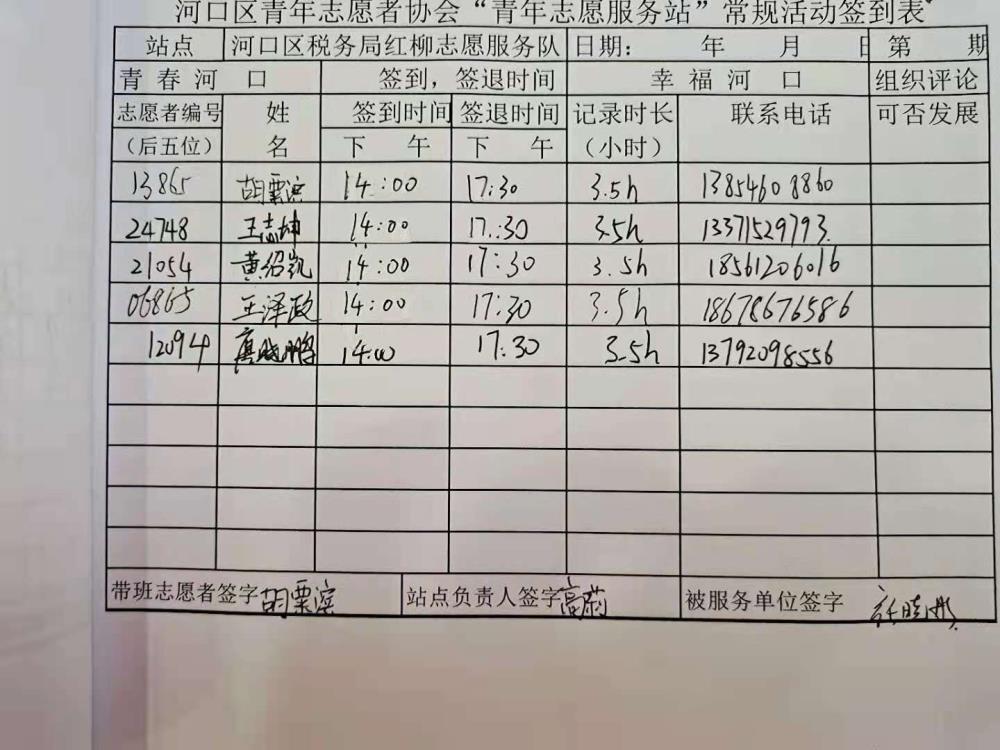 河口区青年志愿者协会“青年志愿服务站”常规活动签到表
站点 河口区税务局红柳志愿服务队 日期： 年 月 日 第 期
青春河口 签到，签退时间 幸福河口 组织评论
志愿者编号 姓 签到时间 签退时间 记录时长 联系电话 可否发展
（后五位） 名 下午 下午 （小时）
13865 胡云滨 14:00 17:30 3.5h 13854608860
24748 王志坤 14:00 17:30 3.5h 13371529793
21054 黄绍凯 14:00 17:30 3.5h 18561206016
06865 王泽政 14:00 17:30 3.5h 18678676586
12094 唐晓鹏 14:00 17:30 3.5h 13792098556
带班志愿者签字 胡云滨 站点负责人签字 高 被服务单位签字